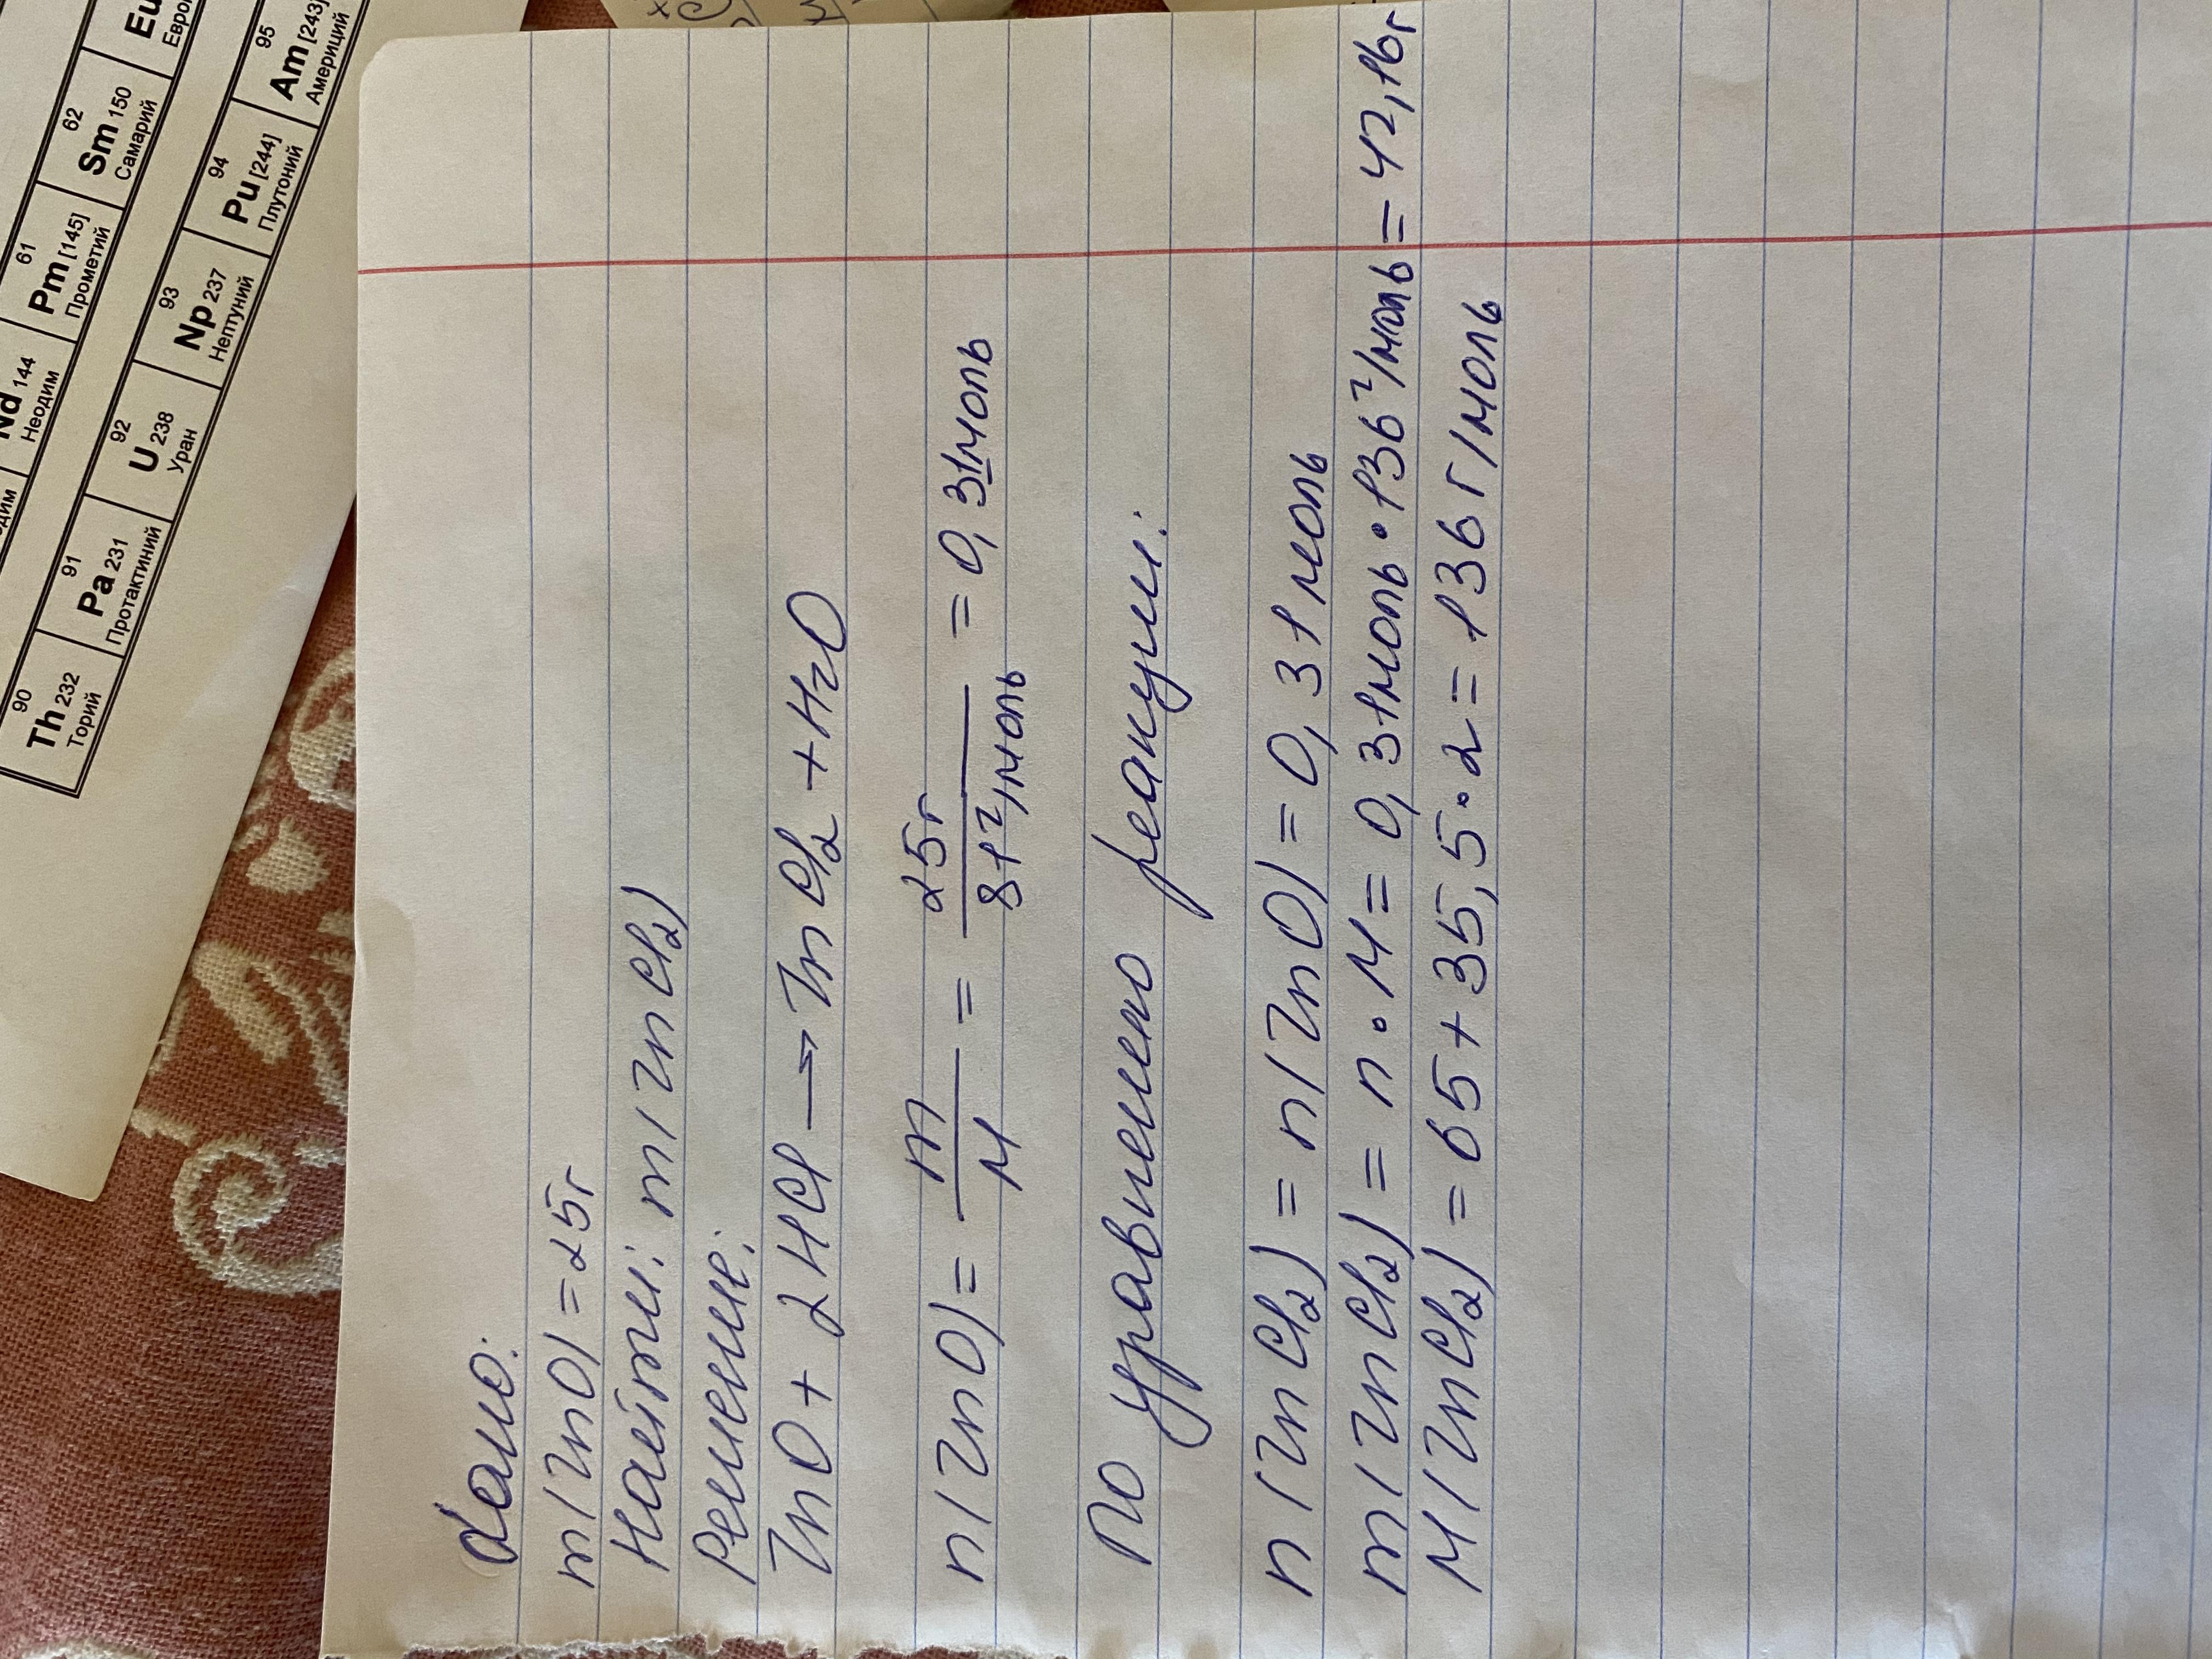 Дано:
m(ZnO)=25г
Найти: m(ZnCl₂)
Решение:
ZnO + 2HCl → ZnCl₂ + H₂O
n(ZnO) = m/M = 25г/81г/моль = 0,31моль
По уравнению реакции:
n(ZnCl₂) = n(ZnO) = 0,31моль
m(ZnCl₂) = n·M = 0,31моль·136г/моль = 42,16г
M(ZnCl₂) = 65+35,5·2 = 136г/моль
61
Pm [145]
Прометий
62
Sm 150
Самарий
Eu
Nd 144
Неодим
90
Th 232
Торий
91
Pa 231
Протактиний
92
U 238
Уран
93
Np 237
Нептуний
94
Pu [244]
Плутоний
95
Am [243]
Америций